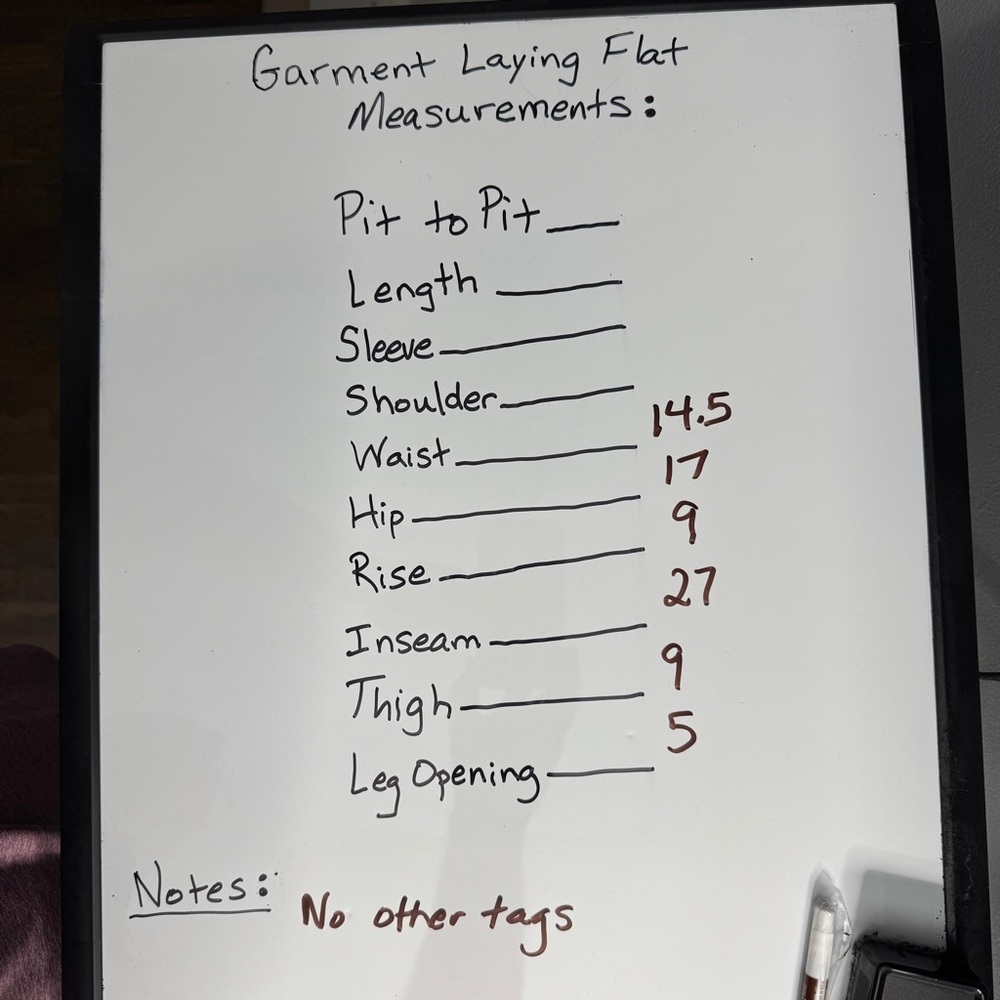 Garment Laying Flat
Measurements:
Pit to Pit ___
Length ___
Sleeve ___
Shoulder ___
Waist ___ 14.5
Hip ___ 17
Rise ___ 9
Inseam ___ 27
Thigh ___ 9
Leg Opening ___ 5
Notes: No other tags